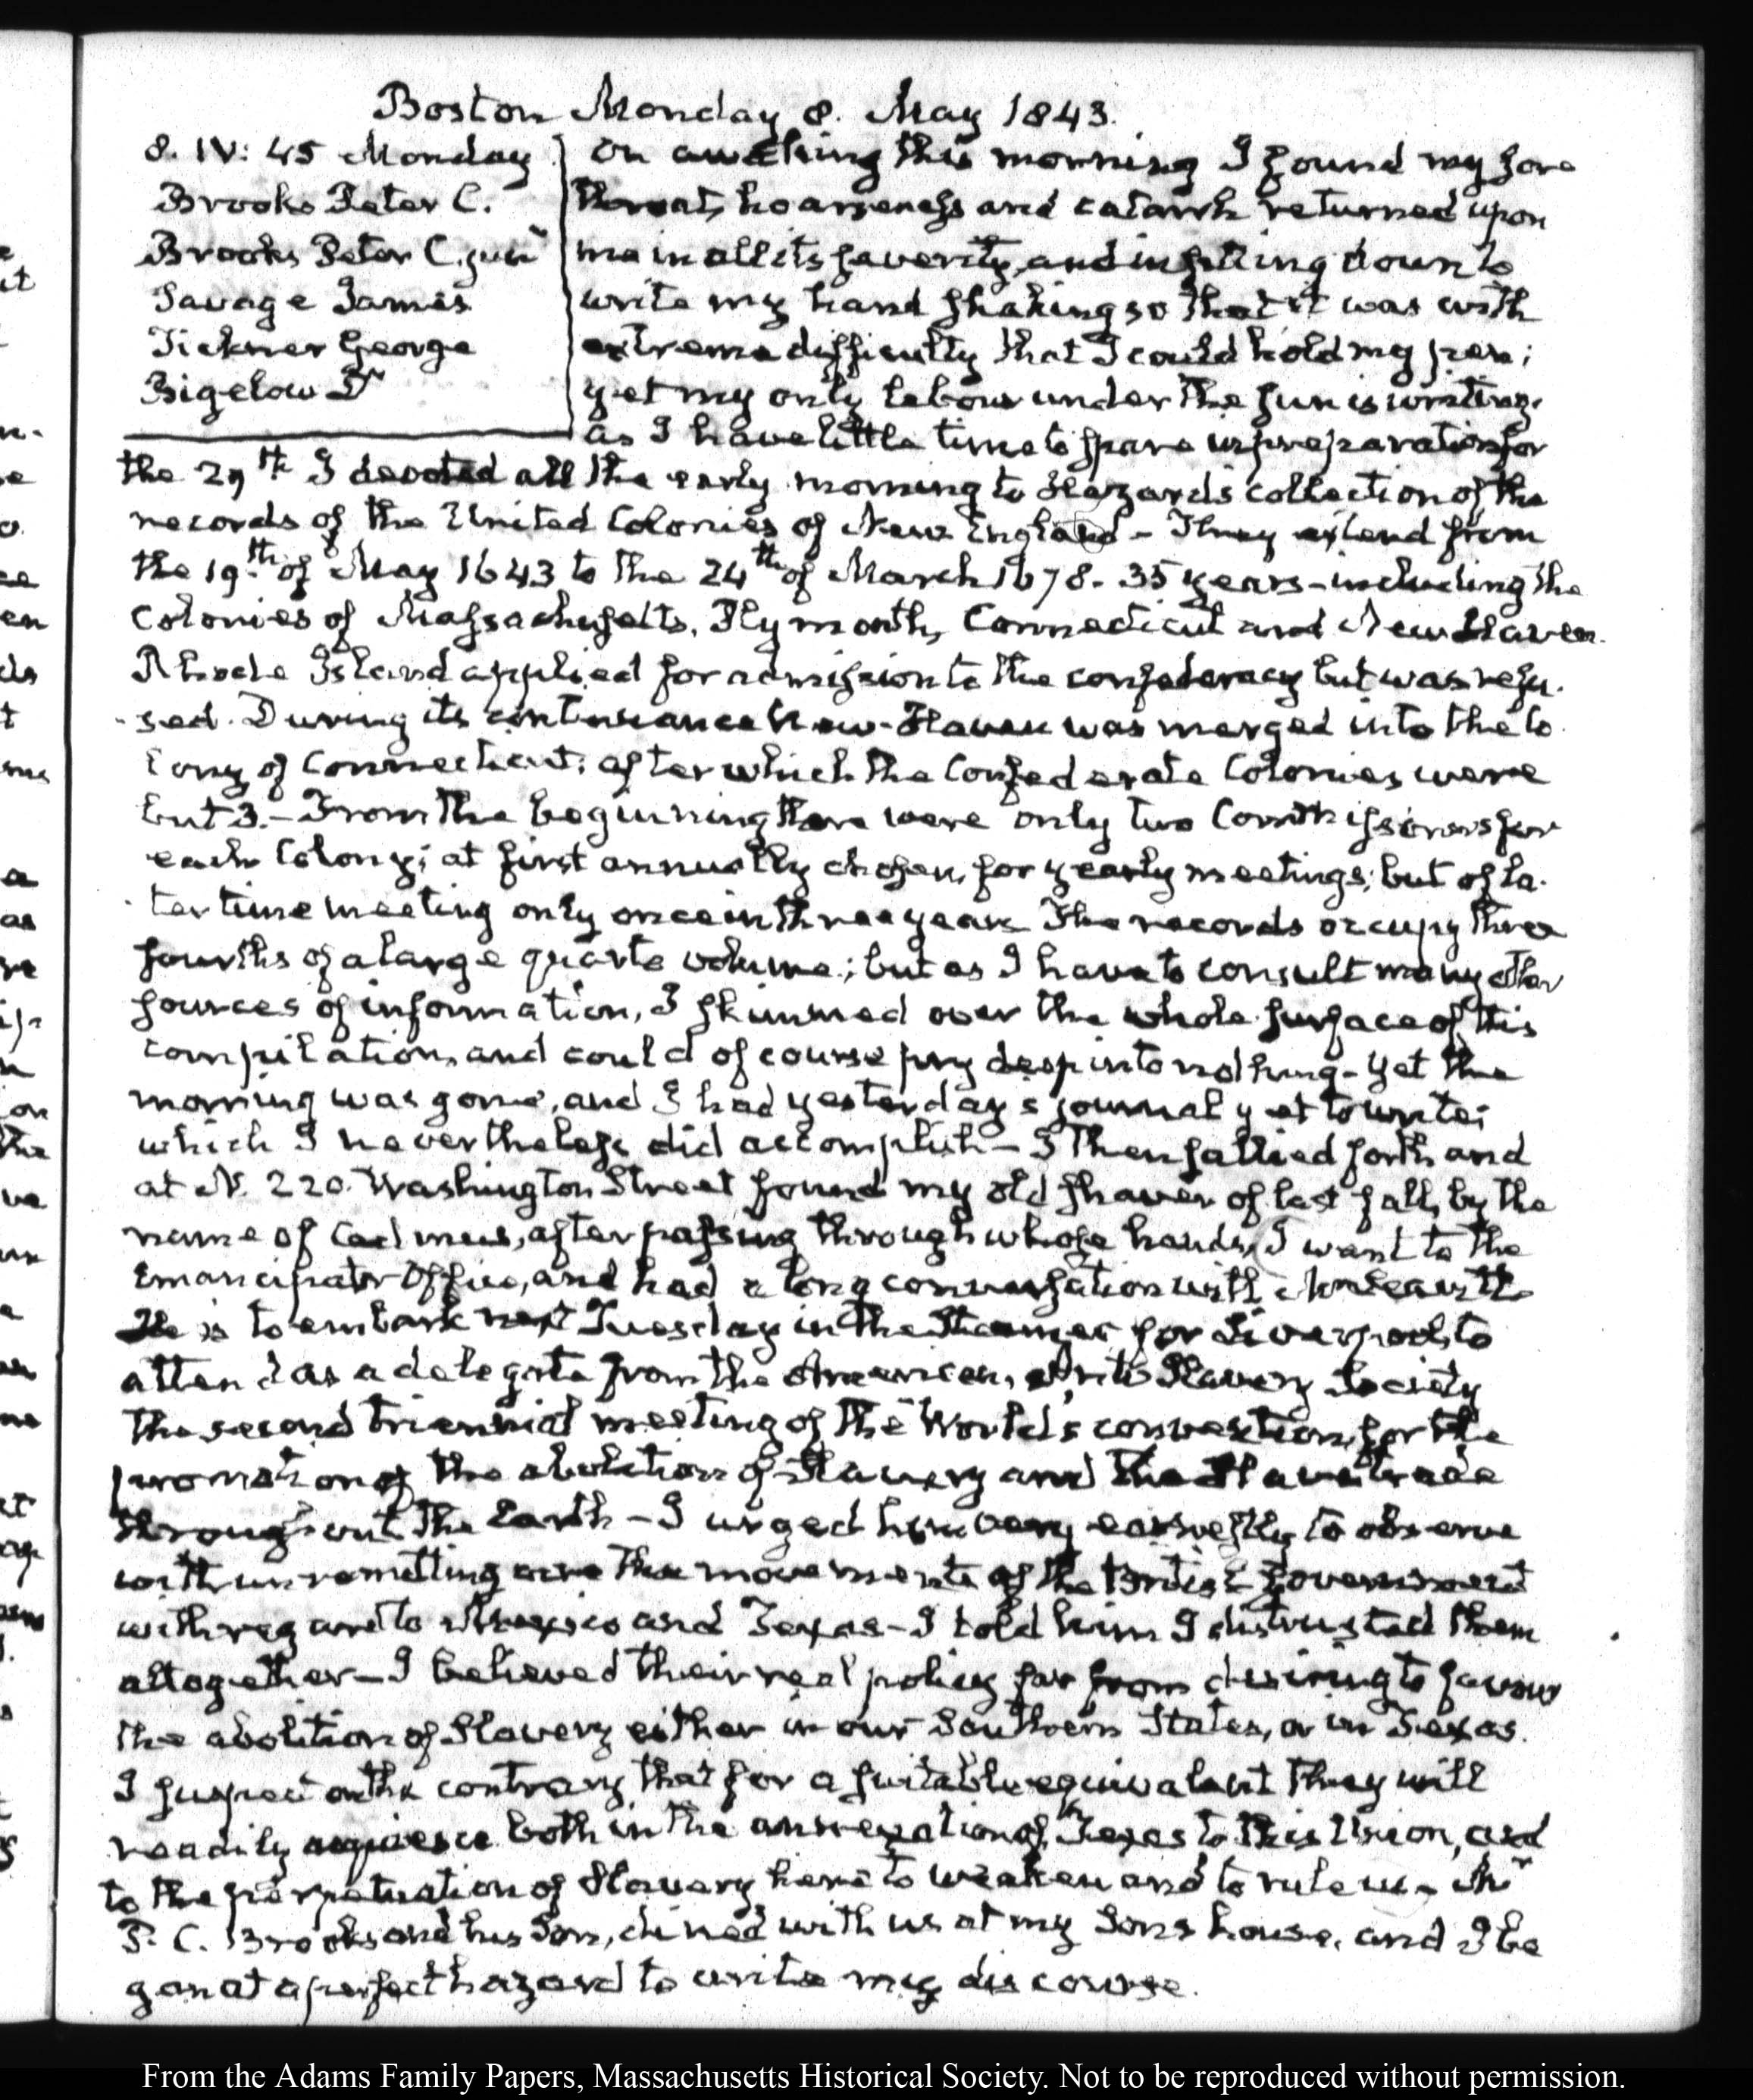 Boston Monday 8. May 1843.
8. IV: 45 Monday
Brooks Peter C.
Brooks Peter C. junr
Savage James
Ticknor George
Bigelow Dr
On awaking this morning I found my sore
throat, hoarseness and catarrh returned upon
me in all its severity, and in sitting down to
write my hand shaking so that it was with
extreme difficulty that I could hold my pen;
yet my only labour under the sun is writing.
As I have little time to spare in preparation for
the 29th I devoted all the early morning to Hazard's collection of the
records of the United Colonies of New England - They extend from
the 19th of May 1643 to the 24th of March 1678. 35 years - including the
Colonies of Massachusetts, Plymouth, Connecticut and New Haven.
Rhode Island applied for admission to the confederacy but was refu-
sed. During its continuance New-Haven was merged into the Co-
lony of Connecticut: after which the Confederate Colonies were
but 3. - From the beginning there were only two Commissioners for
each Colony; at first annually chosen, for yearly meetings; but of la-
ter time meeting only once in three years The records occupy three
fourths of a large quarto volume; but as I have to consult many other
sources of information, I skimmed over the whole surface of this
compilation, and could of course pry deep into nothing - Yet the
morning was gone, and I had yesterday's journal yet to write;
which I nevertheless did accomplish - I then sallied forth and
at N. 220. Washington Street found my old shaver of last fall, by the
name of Cadmus, after passing through whose hands, I went to the
Emancipator Office, and had a long conversation with Mr Leavitt
He is to embark next Tuesday in the Steamer for Liverpool, to
attend as a delegate from the American, Anti Slavery Society
the second triennial meeting of the World's convention, for the
promotion of the abolition of Slavery and the Slave trade
throughout the Earth - I urged him very earnestly to observe
with unremitting care the movements of the British Government
with regard to Mexico and Texas - I told him I distrusted them
altogether - I believed their real policy far from desiring to favour
the abolition of Slavery either in our Southern States, or in Texas.
I suspect on the contrary that for a suitable equivalent they will
readily acquiesce both in the annexation of Texas to this Union, and
to the perpetuation of Slavery here to weaken and to rule us - Mr
P. C. Brooks and his Son, dined with us at my Sons house, and I be
gan at a perfect hazard to write my discourse.
From the Adams Family Papers, Massachusetts Historical Society. Not to be reproduced without permission.